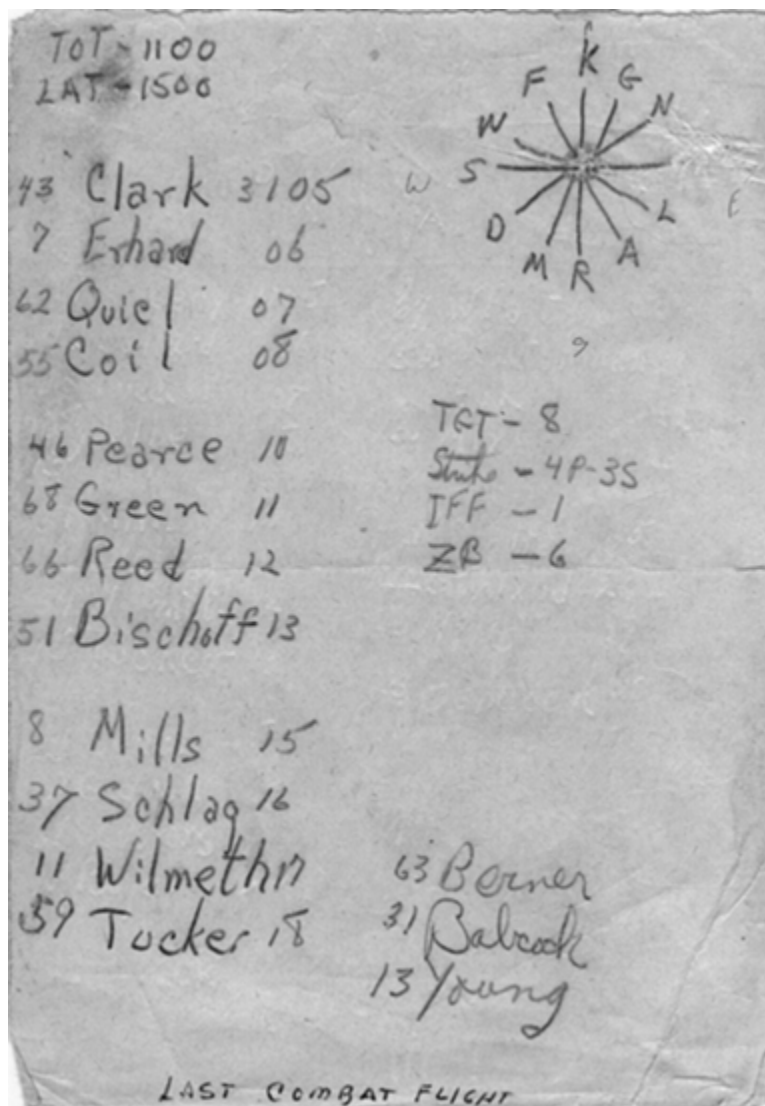 TOT - 1100
LAT - 1500
43 Clark 3105
7 Erhard 06
62 Quiel 07
55 Coil 08
46 Pearce 10
68 Green 11
66 Reed 12
51 Bischoff 13
8 Mills 15
37 Schlag 16
11 Wilmeth 17
59 Tucker 18
K
F G
W N
W S E
D L
M R A
TGT - 8
Strike - 4P-3S
IFF - 1
ZB - 6
63 Berner
31 Babcock
13 Young
LAST COMBAT FLIGHT